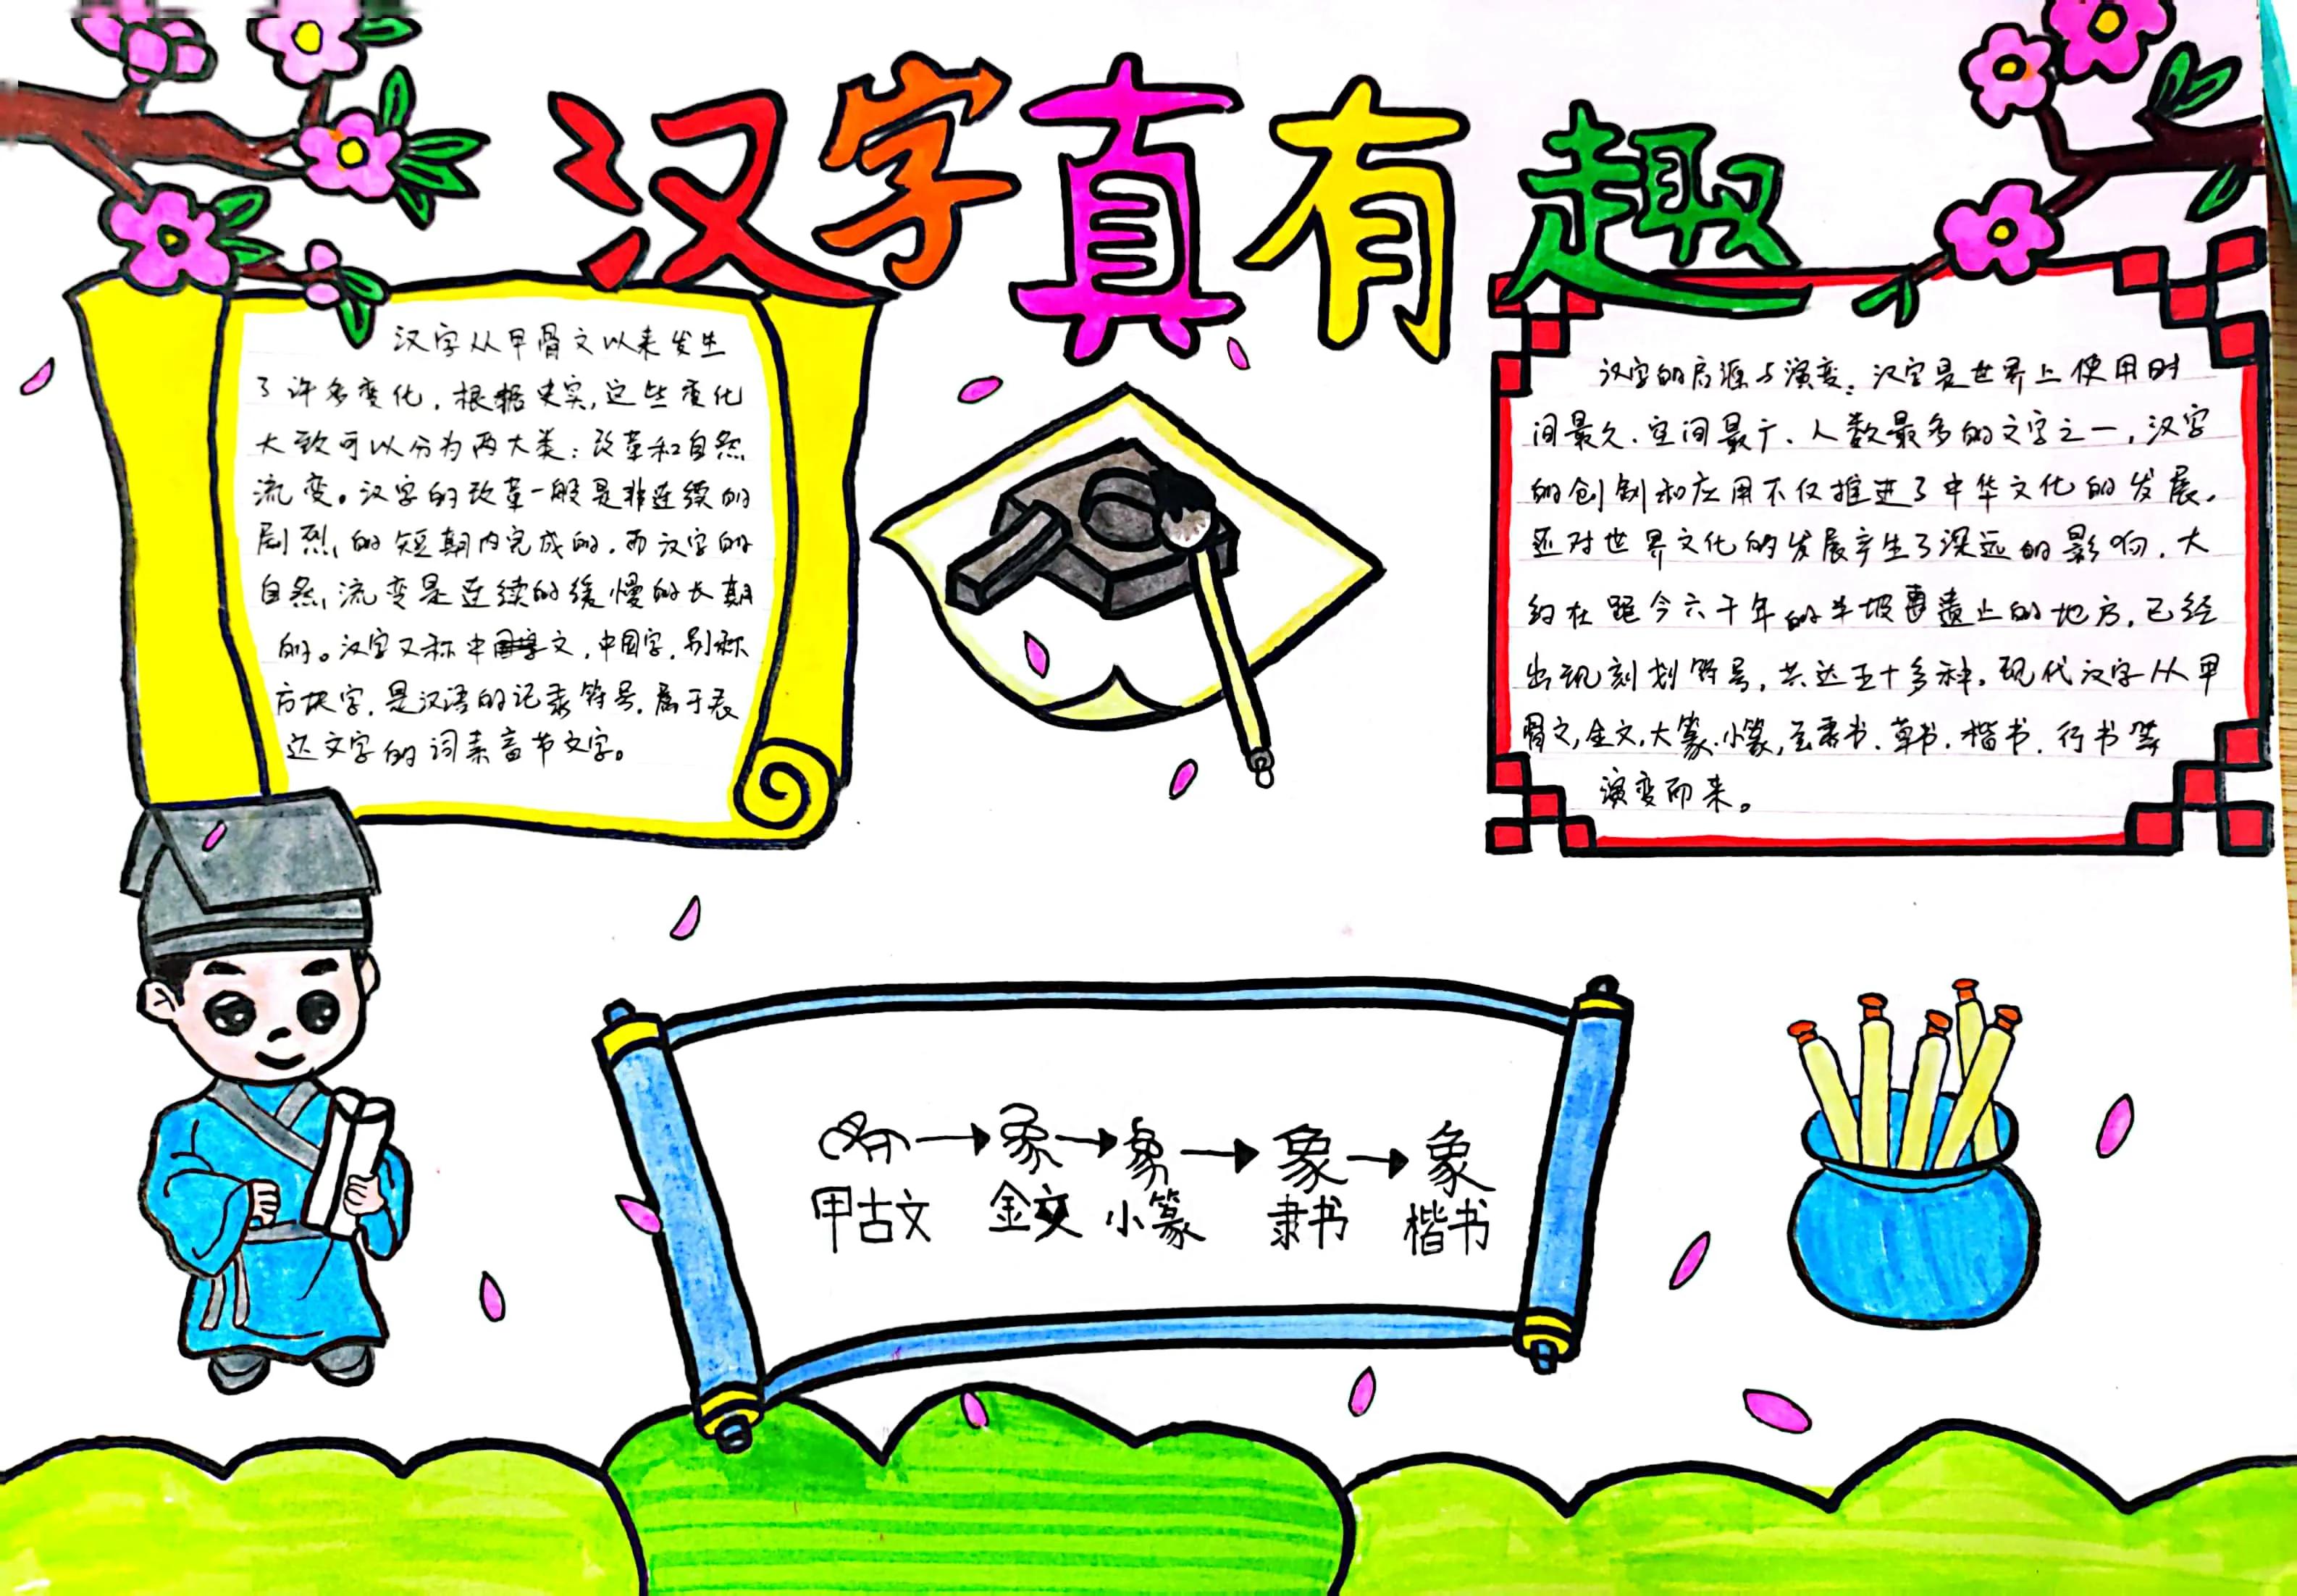 汉字真有趣
汉字从甲骨文以来发生
了许多变化,根据史实,这些变化
大致可以分为两大类:改革和自然
流变。汉字的改革一般是非连续的
剧烈的短期内完成的,而汉字的
自然流变是连续的缓慢的长期
的。汉字又称中文,中国字,别称
方块字,是汉语的记录符号,属于表
达文字的词素音节文字。
汉字的启源与演变:汉字是世界上使用时
间最久、空间最广、人数最多的文字之一,汉字
的创制和应用不仅推进了中华文化的发展,
还对世界文化的发展产生了深远的影响,大
约在距今六千年的半坡遗上的地方,已经
出现刻划符号,共达五十多种。现代汉字从甲
骨文,金文,大篆、小篆,至隶书、草书、楷书、行书等
演变而来。
象→象→象→象
甲古文 金文 小篆 隶书 楷书